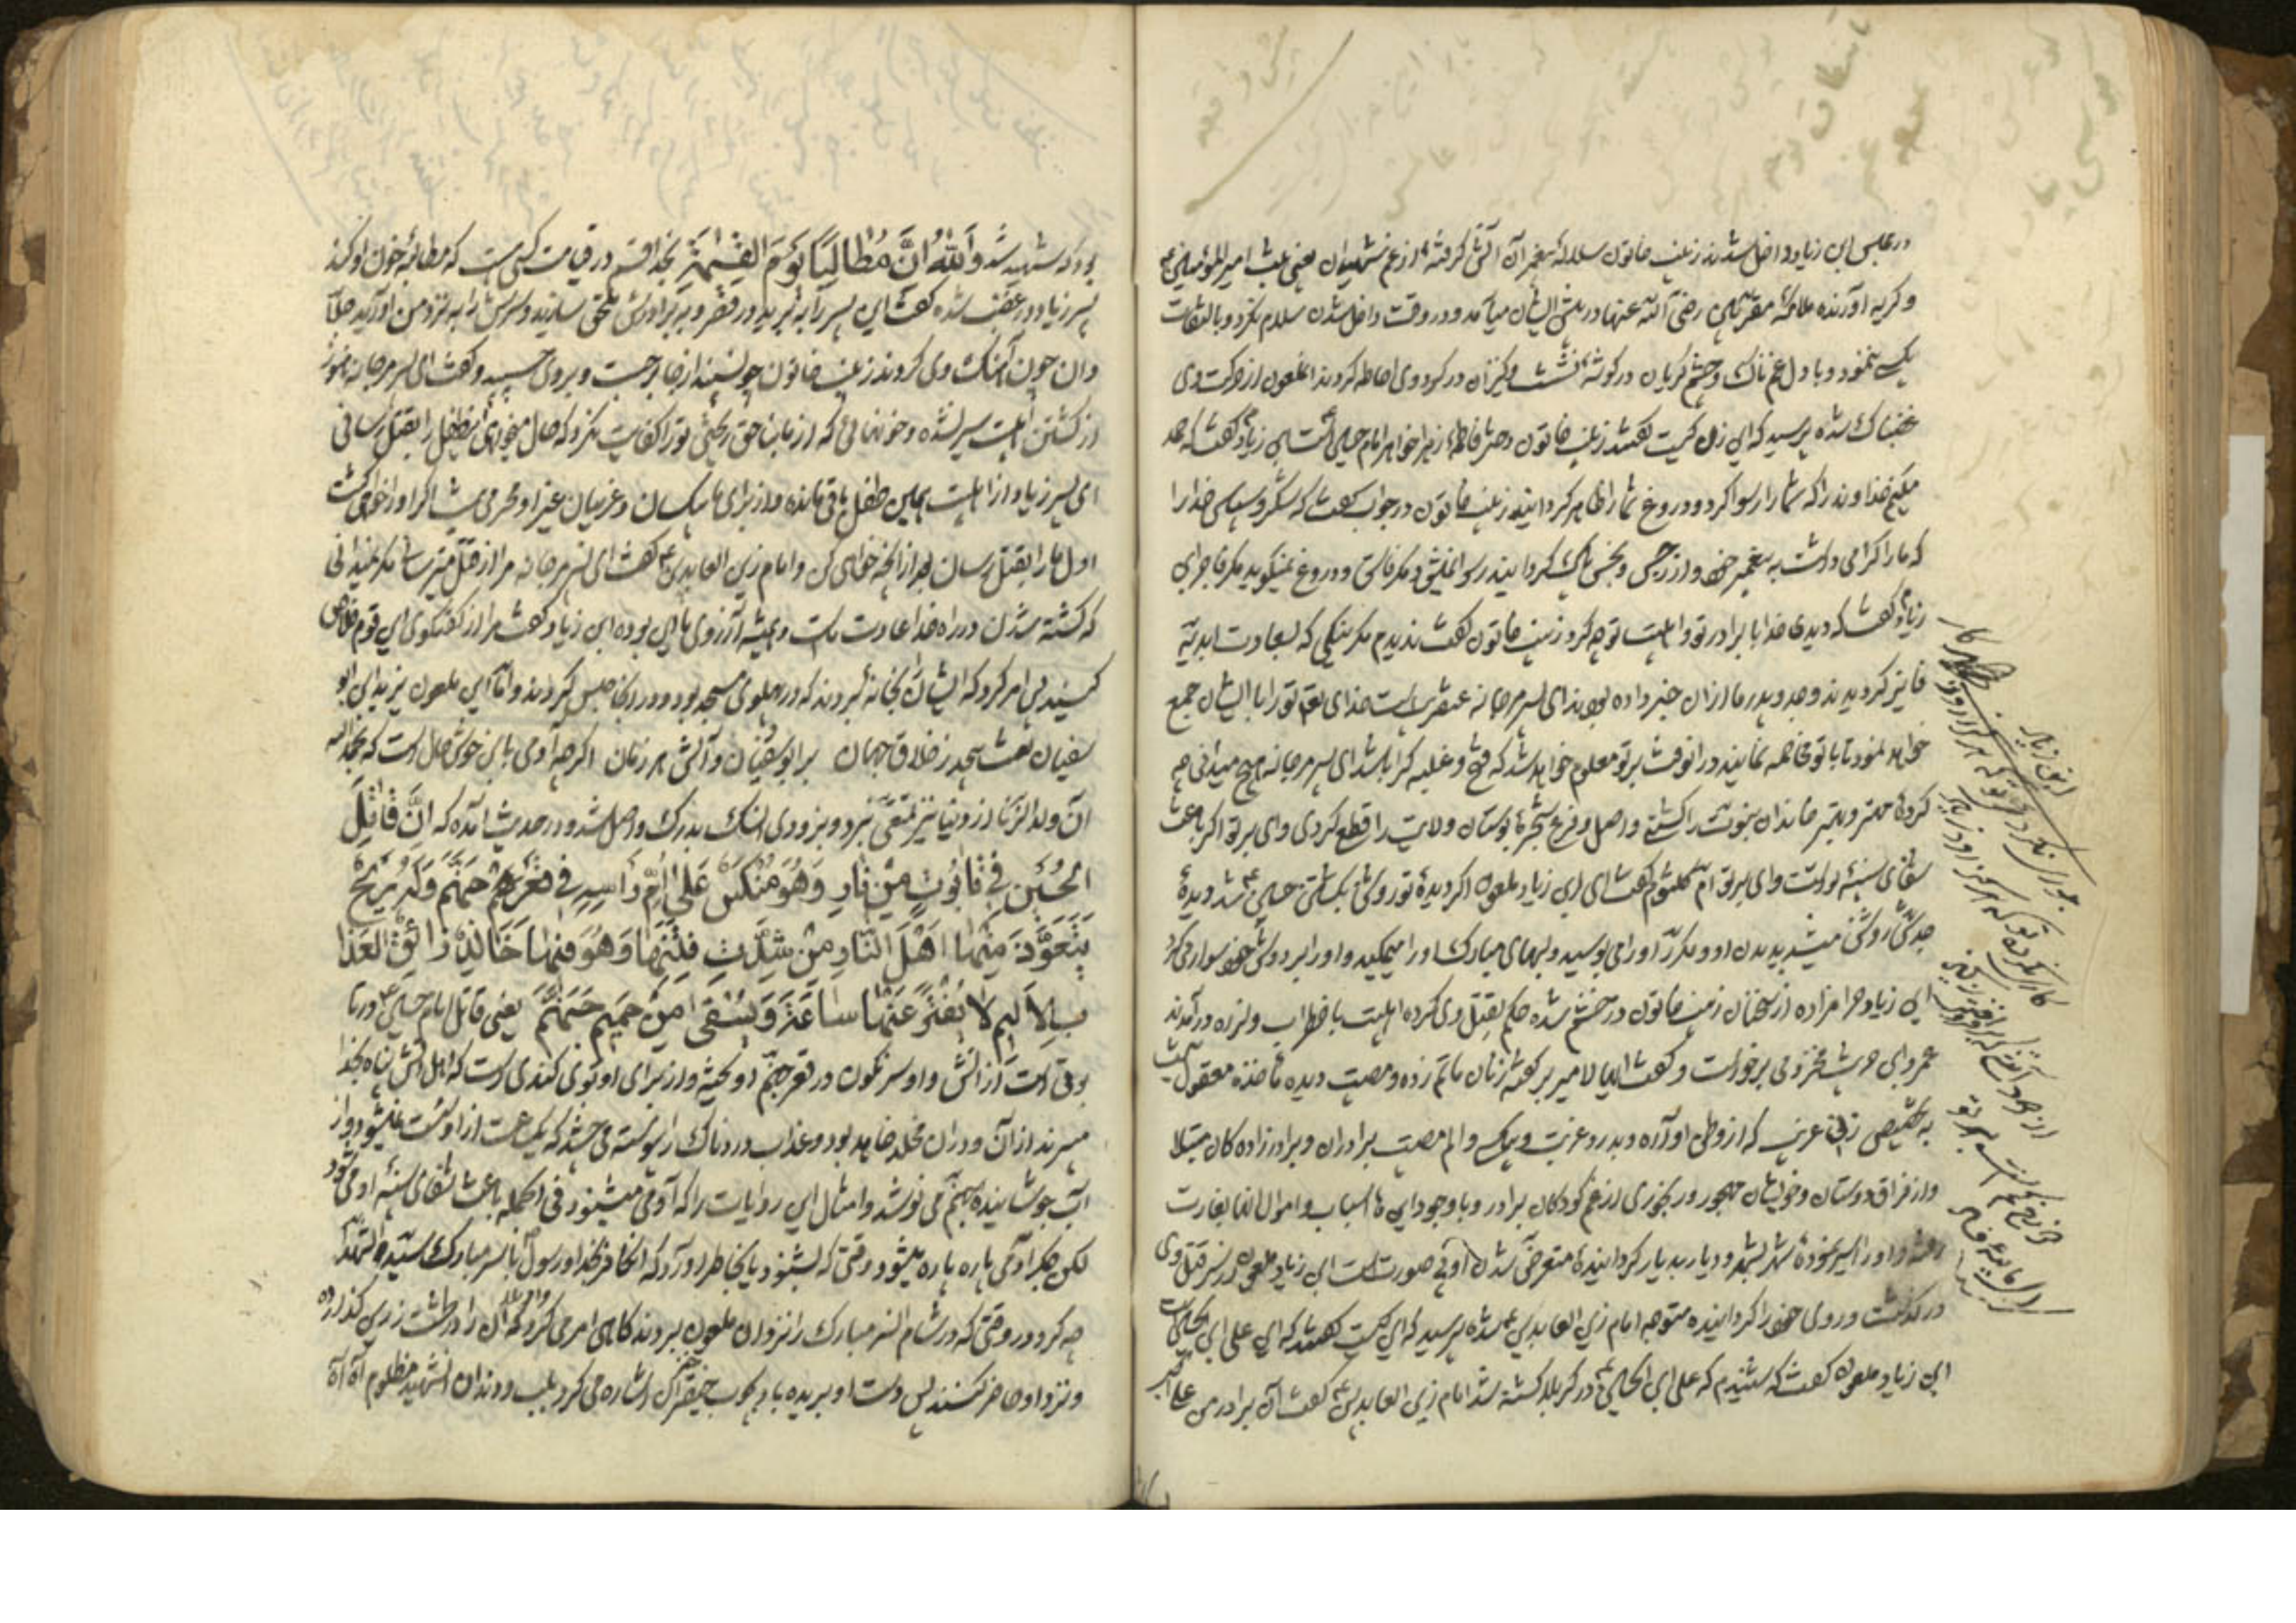 در مجلس ابن زیاد داخل شدند زینب خاتون سلاله پیغمبر آن آتش گرفته از غم شهیدان یعنی بنت امیرالمؤمنین
و گریه آورنده ملائکه مقربین رضی الله عنها در پیش ایشان می آمد و در وقت داخل شدن سلام نکرد و بالتفات
یک ننمود و با دل غمناک و چشم گریان در گوشه بنشست و کنیزان در گرد وی احاطه کردند انملعون از حرکت وی
غضبناک شده پرسید که این زن کیست گفتند زینب خاتون دختر فاطمه زهرا خواهر امام حسین است ابن زیاد گفت که حمد
میکنم خداوند را که شما را رسوا کرد و دروغ شما را ظاهر گردانید زینب خاتون در جواب گفت که شکر و سپاس خدا را
که ما را گرامی داشت به پیغمبر خود و از رجس و نجس پاک گردانید رسوا نمیشود مگر فاسق و دروغ نمیگوید مگر فاجر ابن
زیاد گفت که دیدی خدا با برادر تو و اهلبیت تو چه کرد زینب خاتون گفت ندیدم مگر نیکی که بسعادت ابدیه
فایز گردیدند وجد و پدر ما ازان خبر داده بودند ای پسر مرجانه عنقریب است خدای تعم تو را با ایشان جمع
خواهد نمود تا با تو مخاصمه نمایند در انوقت بر تو معلوم خواهد شد که فتح و غلبه کرا باشد ای پسر مرجانه هیچ میدانی چه
کرده مهتر و بهتر خاندان نبوت را کشتی و اصل و فرع شجره بوستان ولایت را قطع کردی وای بر تو اگر باعث
شفای سینه تو است وای بر تو ام کلثوم گفت ای ابن زیاد ملعون اگر دیده تو روشن بکشتن حسین شد دیده
جدش روشن میشد بدیدن او و مکرر او را می بوسید و لبهای مبارک او را میمکید و او را بر دوش خود سوار میکرد
ابن زیاد حرامزاده از سخنان زینب خاتون در خشم شده حکم بقتل وی کرده اهلبیت باضطراب و لرزه در آمدند
عمرو ابن حریث مخزومی برخواست و گفت ایها الامیر بر گفته زنان ماتم زده و مصیبت دیده مأخذه معقول نیست
به تخصیص زنی غریب که از وطن آواره و بدرد غربت و بیکسی و الم مصیبت برادران و برادرزاده کان مبتلا
و از فراق دوستان و خویشان مهجور و رنجوری از غم کودکان برادر و با وجود این ها اسباب و اموال انها بغارت
رفته و او را اسیر نموده شهر بشهر و دیار بدیار گردانیده متعرض شدن او بی صورت است ابن زیاد ملعون از سر قتل وی
در گذشت و روی خود را گردانیده متوجه امام زین العابدین شده پرسید که این کیست گفتند که این علی ابن الحسین است
ابن زیاد ملعون گفت که شنیدم که علی ابن الحسین در کربلا کشته شد امام زین العابدین گفت آن برادر من علی اکبر
ابن زیاد
بود که شهید شد وَاللهُ اِنَّ مُطالِبًا یَوْمَ القِیٰمَةِ بخدا قسم در قیامت کسی هست که مطالبه خون او کند
پسر زیاد در غضب شده گفت این پسر را به برید در قصر و به برادرش ملحق سازید و سرش را به نزد من آورید جلاد
دان چون آهنگ وی کردند زینب خاتون چو سپند از جا برجست و بروی چسپید و گفت ای پسر مرجانه هنوز
از کشتن اهلبیت سیر نشده و خونهائی که از ما بناحق ریختی تو را کفایت نکرد که حال میخواهی این طفل را بقتل رسانی
ای پسر زیاد از اهلبیت همین طفل باقی مانده و از برای ما بیکسان و غریبان غیر او محرمی نیست اگر او را خواهی کشت
اول مارا بقتل رسان بعد از ان هر چه خواهی کن و امام زین العابدین گفت ای پسر مرجانه مرا از قتل میترسانی مگر نمیدانی
که کشته شدن در راه خدا عادت ماست و همیشه آرزوی ما این بوده ابن زیاد گفت مرا از گفتگوی این قوم خلاص
کنید پس امر کرد که ایشان را بخانه بردند که در پهلوی مسجد بود و در انجا حبس کردند و اما این ملعون یزید ابن ابو
سفیان لعنت بیحد ز خلاق جهان بر ابوسفیان و آلش هر زمان اگر چه آدمی باین خوش دل است که بحمدالله
آن ولدالزنا از دنیا نیز تمتعی نبرد و بزودی اسنک بدرک واصل شد و در حدیث آمده که اِنَّ قاتِلَ
الحُسَیْنِ فی تابُوتٍ مِنْ نارٍ وَهُوَ مُنَکَّسٌ عَلی اُمِّ رَاسِهِ فی قَعْرِ جَهَنَّمَ وَلَهُ رِیحٌ
یَتَعَوَّذُ مِنْها اَهْلُ النّارِ مِنْ شِدَّتِ نَتْنِها وَهُوَ فیها خالِدٌ ذائِقُ العَذا
بِ الاَلیمِ لا یُفَتَّرُ عَنْها ساعَةً وَ یُسْقی مِنْ حَمیمِ جَهَنَّمَ یعنی قاتل امام حسین در تا
بوتی است از آتش و او سرنگون در قعر جهنم آویخته و از برای او بوی کندی است که اهل آتش پناه بخدا
میبرند از آن و در ان مخلد خواهد بود و عذاب دردناک را پیوسته می چشد که یک ساعت از او سست نمیشود و از
آب جوشانیده جهنم می نوشد و امثال این روایات را که آدمی میشنود فی الجمله باعث شفای سینه او میشود
لکن جگر آدمی پاره پاره میشود وقتی که بشنود یا بخاطر اورد که انکافر بخدا و رسول با سر مبارک سید الشهدا
چه کرد در وقتی که در شام انسر مبارک را نزد ان ملعون بردند گاهی امر می کرد که آن را در طشت زرین گذارده
و نزد او حاضر کنند پس دست او بریده باد بچوب خیزران اشاره می کرد بلب و دندان انشهید مظلوم آه آه